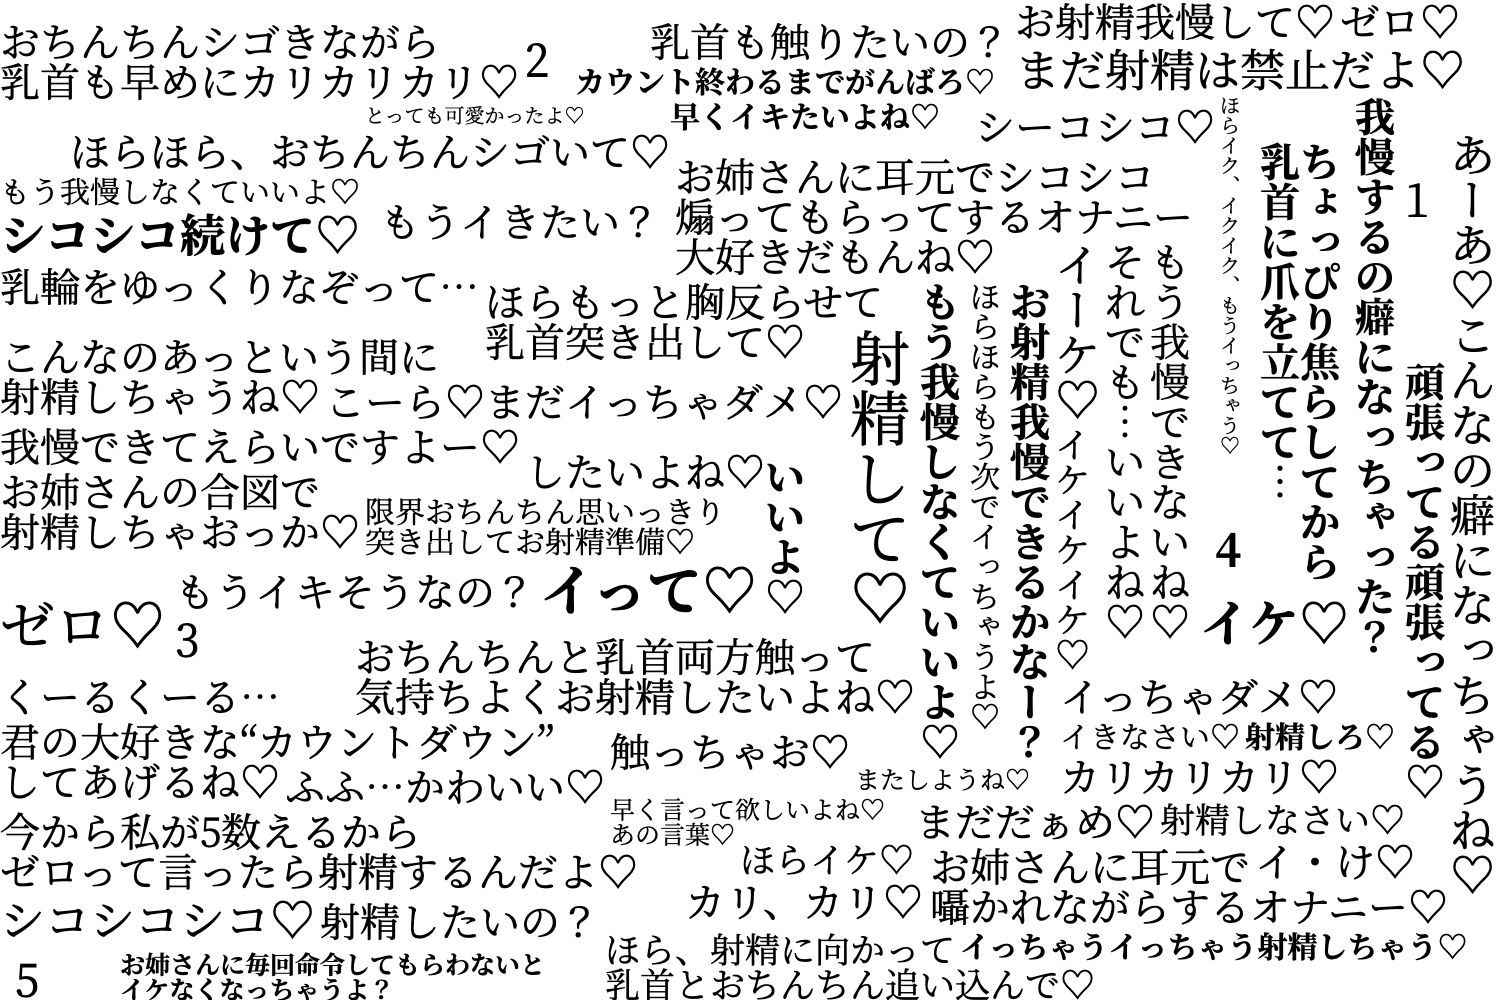 おちんちんシゴきながら
乳首も早めにカリカリカリ♡
2
乳首も触りたいの？
カウント終わるまでがんばろ♡
早くイキたいよね♡
お射精我慢して♡ゼロ♡
まだ射精は禁止だよ♡
とっても可愛かったよ♡
シーコシコ♡
ほらほら、おちんちんシゴいて♡
もう我慢しなくていいよ♡
シコシコ続けて♡
もうイきたい？
お姉さんに耳元でシコシコ
煽ってもらってするオナニー
大好きだもんね♡
乳輪をゆっくりなぞって…
ほらもっと胸反らせて
乳首突き出して♡
こんなのあっという間に
射精しちゃうね♡
こーら♡まだイっちゃダメ♡
我慢できてえらいですよー♡
お姉さんの合図で
射精しちゃおっか♡
したいよね♡
限界おちんちん思いっきり
突き出してお射精準備♡
いいよ♡
射精して♡
もう我慢しなくていいよ♡
ほらほらもう次でイっちゃうよ♡
お射精我慢できるかなー？
イーケ♡イケイケイケイケ♡
それでも…いいよね♡
もう我慢できないね♡
ほらイク、イクイク、もうイっちゃう♡
乳首に爪を立てて…
ちょっぴり焦らしてから
我慢するの癖になっちゃった？
1
頑張ってる頑張ってる♡
あーあ♡こんなの癖になっちゃうね♡
4
イケ♡
ゼロ♡
もうイキそうなの？
イって♡
3
おちんちんと乳首両方触って
気持ちよくお射精したいよね♡
くーるくーる…
イっちゃダメ♡
君の大好きな“カウントダウン”
してあげるね♡
ふふ…かわいい♡
触っちゃお♡
イきなさい♡
射精しろ♡
またしようね♡
カリカリカリ♡
早く言って欲しいよね♡
あの言葉♡
まだだぁめ♡
射精しなさい♡
今から私が5数えるから
ゼロって言ったら射精するんだよ♡
ほらイケ♡
お姉さんに耳元で
囁かれながらするオナニー♡
イ・け♡
カリ、カリ♡
シコシコシコ♡
射精したいの？
ほら、射精に向かって
乳首とおちんちん追い込んで♡
イっちゃうイっちゃう射精しちゃう♡
5
お姉さんに毎回命令してもらわないと
イケなくなっちゃうよ？